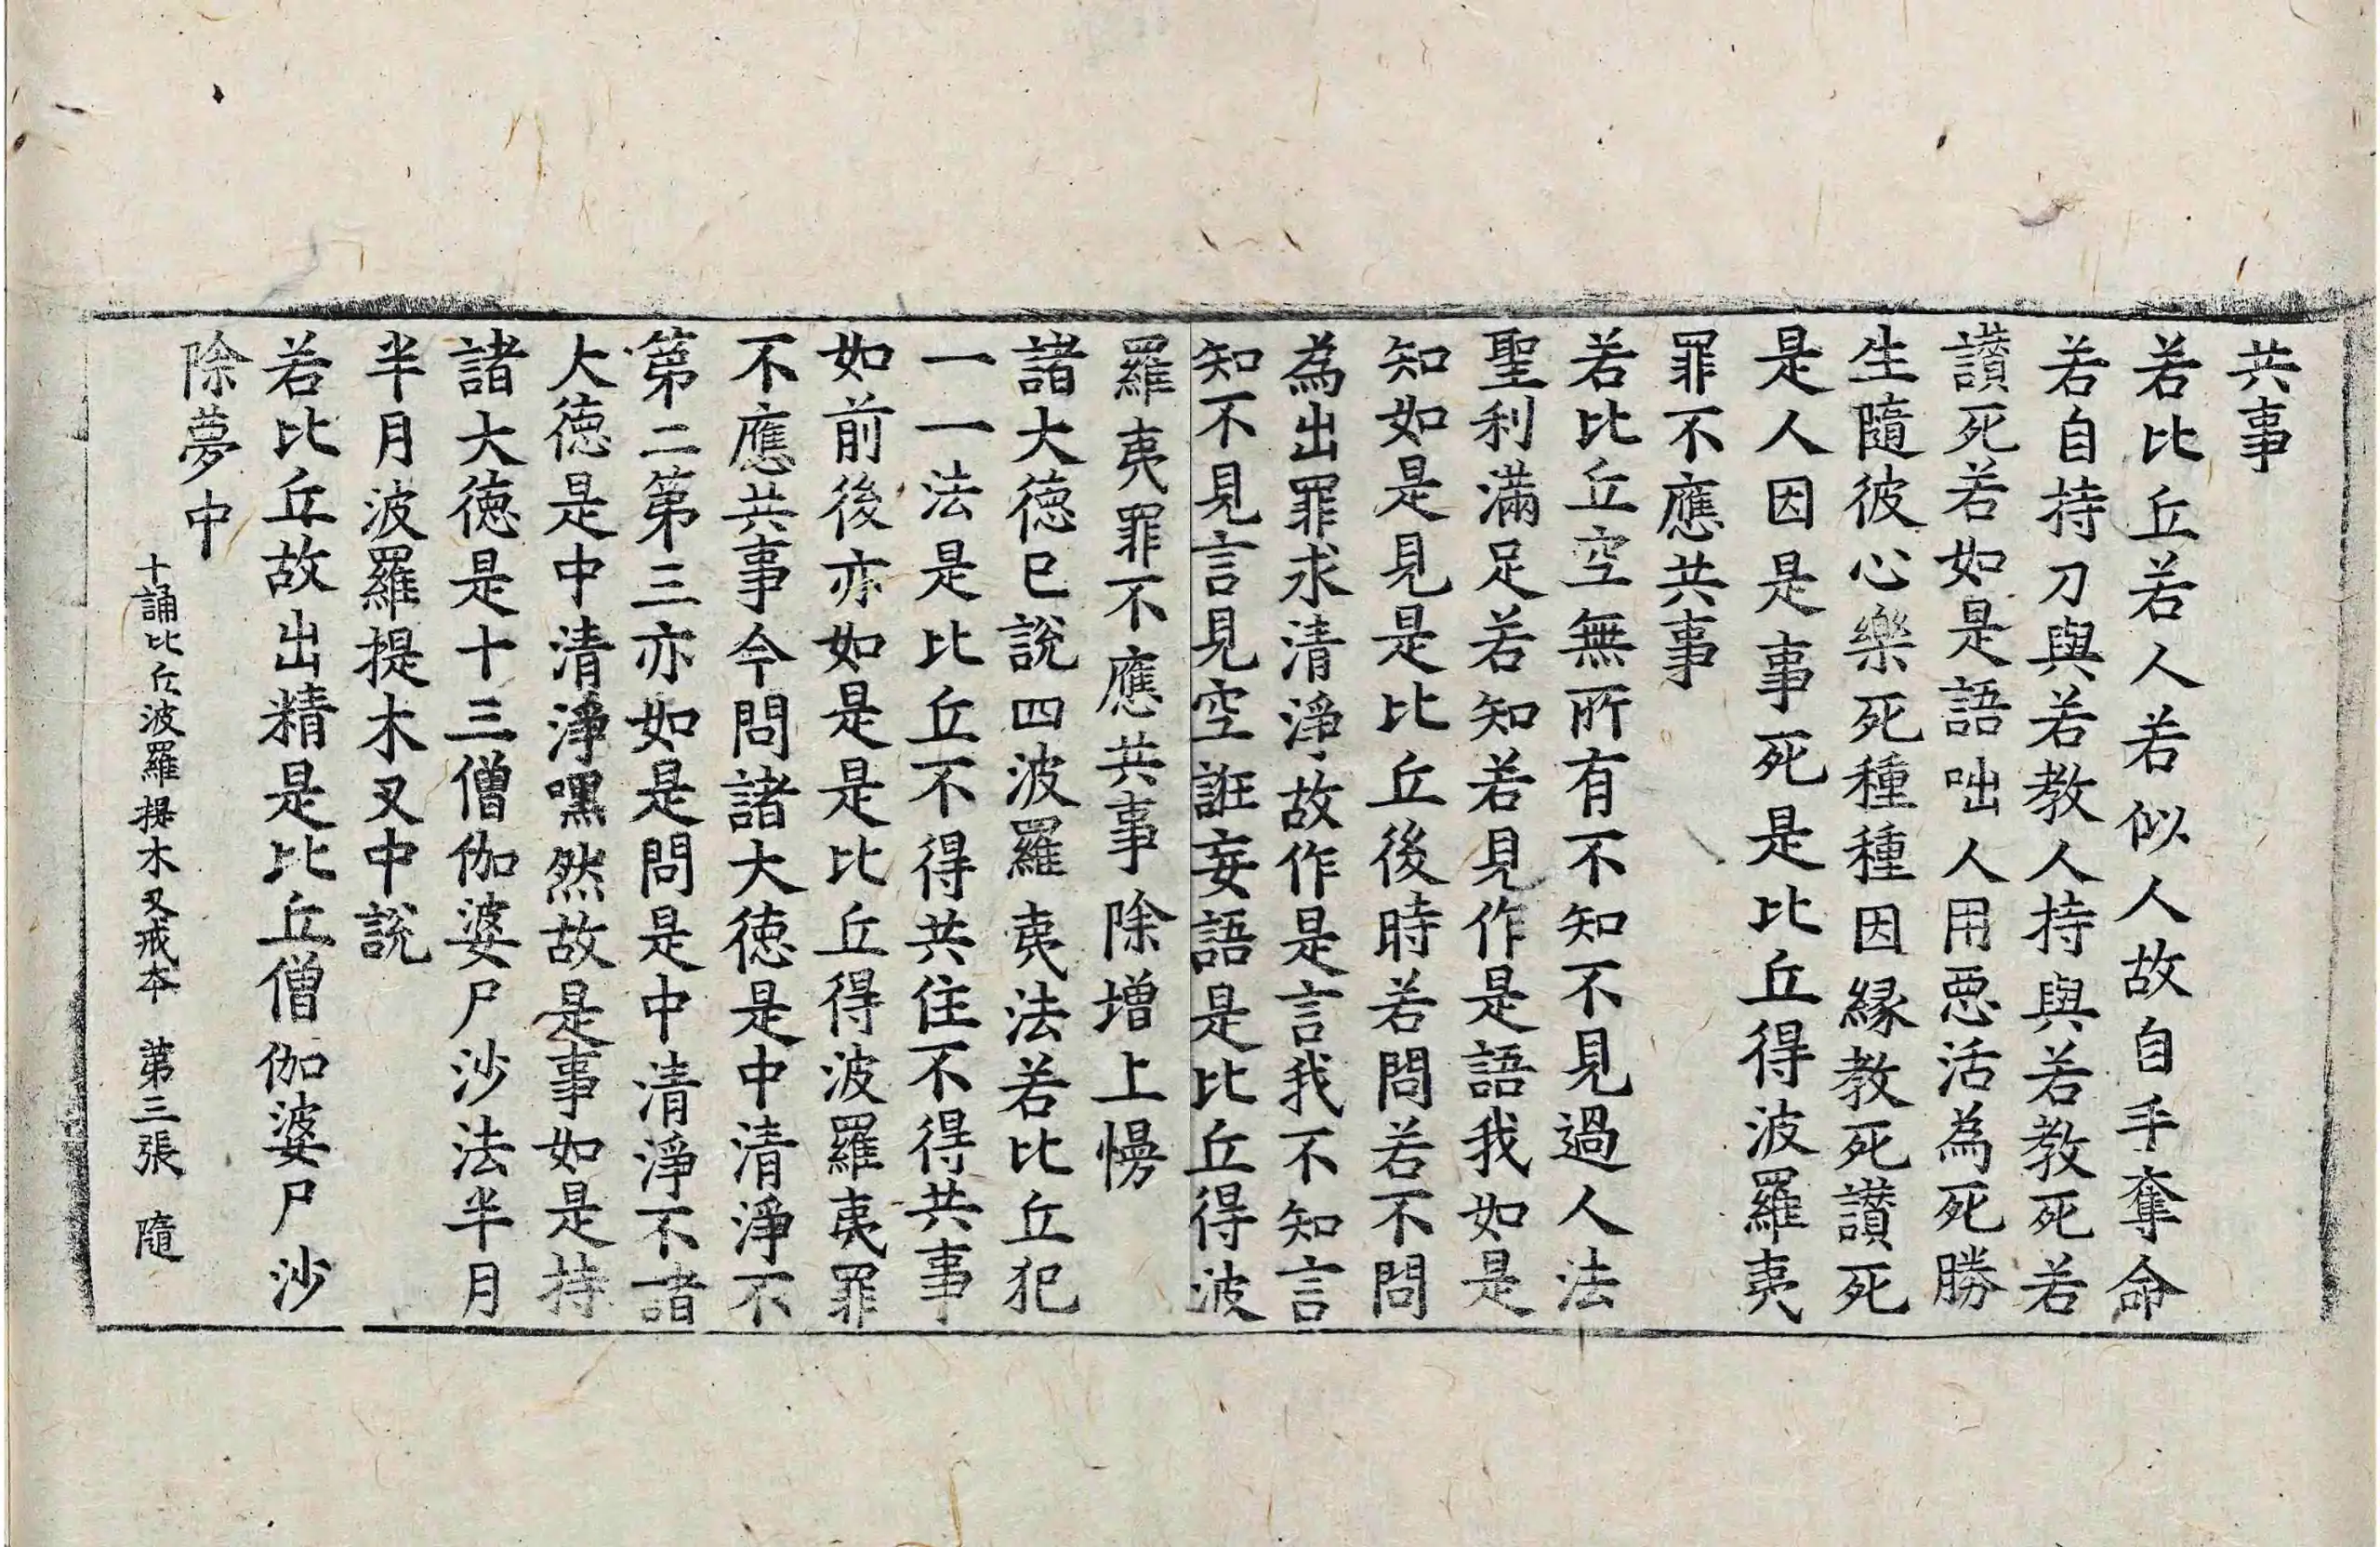 共事
若比丘若人若似人故自手奪命
若自持刀與若教人持與若教死若
讃死若如是語咄人用惡活為死勝
生隨彼心樂死種種因縁教死讃死
是人因是事死是比丘得波羅夷
罪不應共事
若比丘空無所有不知不見過人法
聖利滿足若知若見作是語我如是
知如是見是比丘後時若問若不問
為出罪求清淨故作是言我不知言
知不見言見空誑妄語是比丘得波
羅夷罪不應共事除增上慢
諸大徳已說四波羅夷法若比丘犯
一一法是比丘不得共住不得共事
如前後亦如是是比丘得波羅夷罪
不應共事今問諸大徳是中清淨不
第二第三亦如是問是中清淨不諸
大徳是中清淨嘿然故是事如是持
諸大徳是十三僧伽婆尸沙法半月
半月波羅提木叉中說
若比丘故出精是比丘僧伽婆尸沙
除夢中
十誦比丘波羅提木叉戒本 第三張 隨